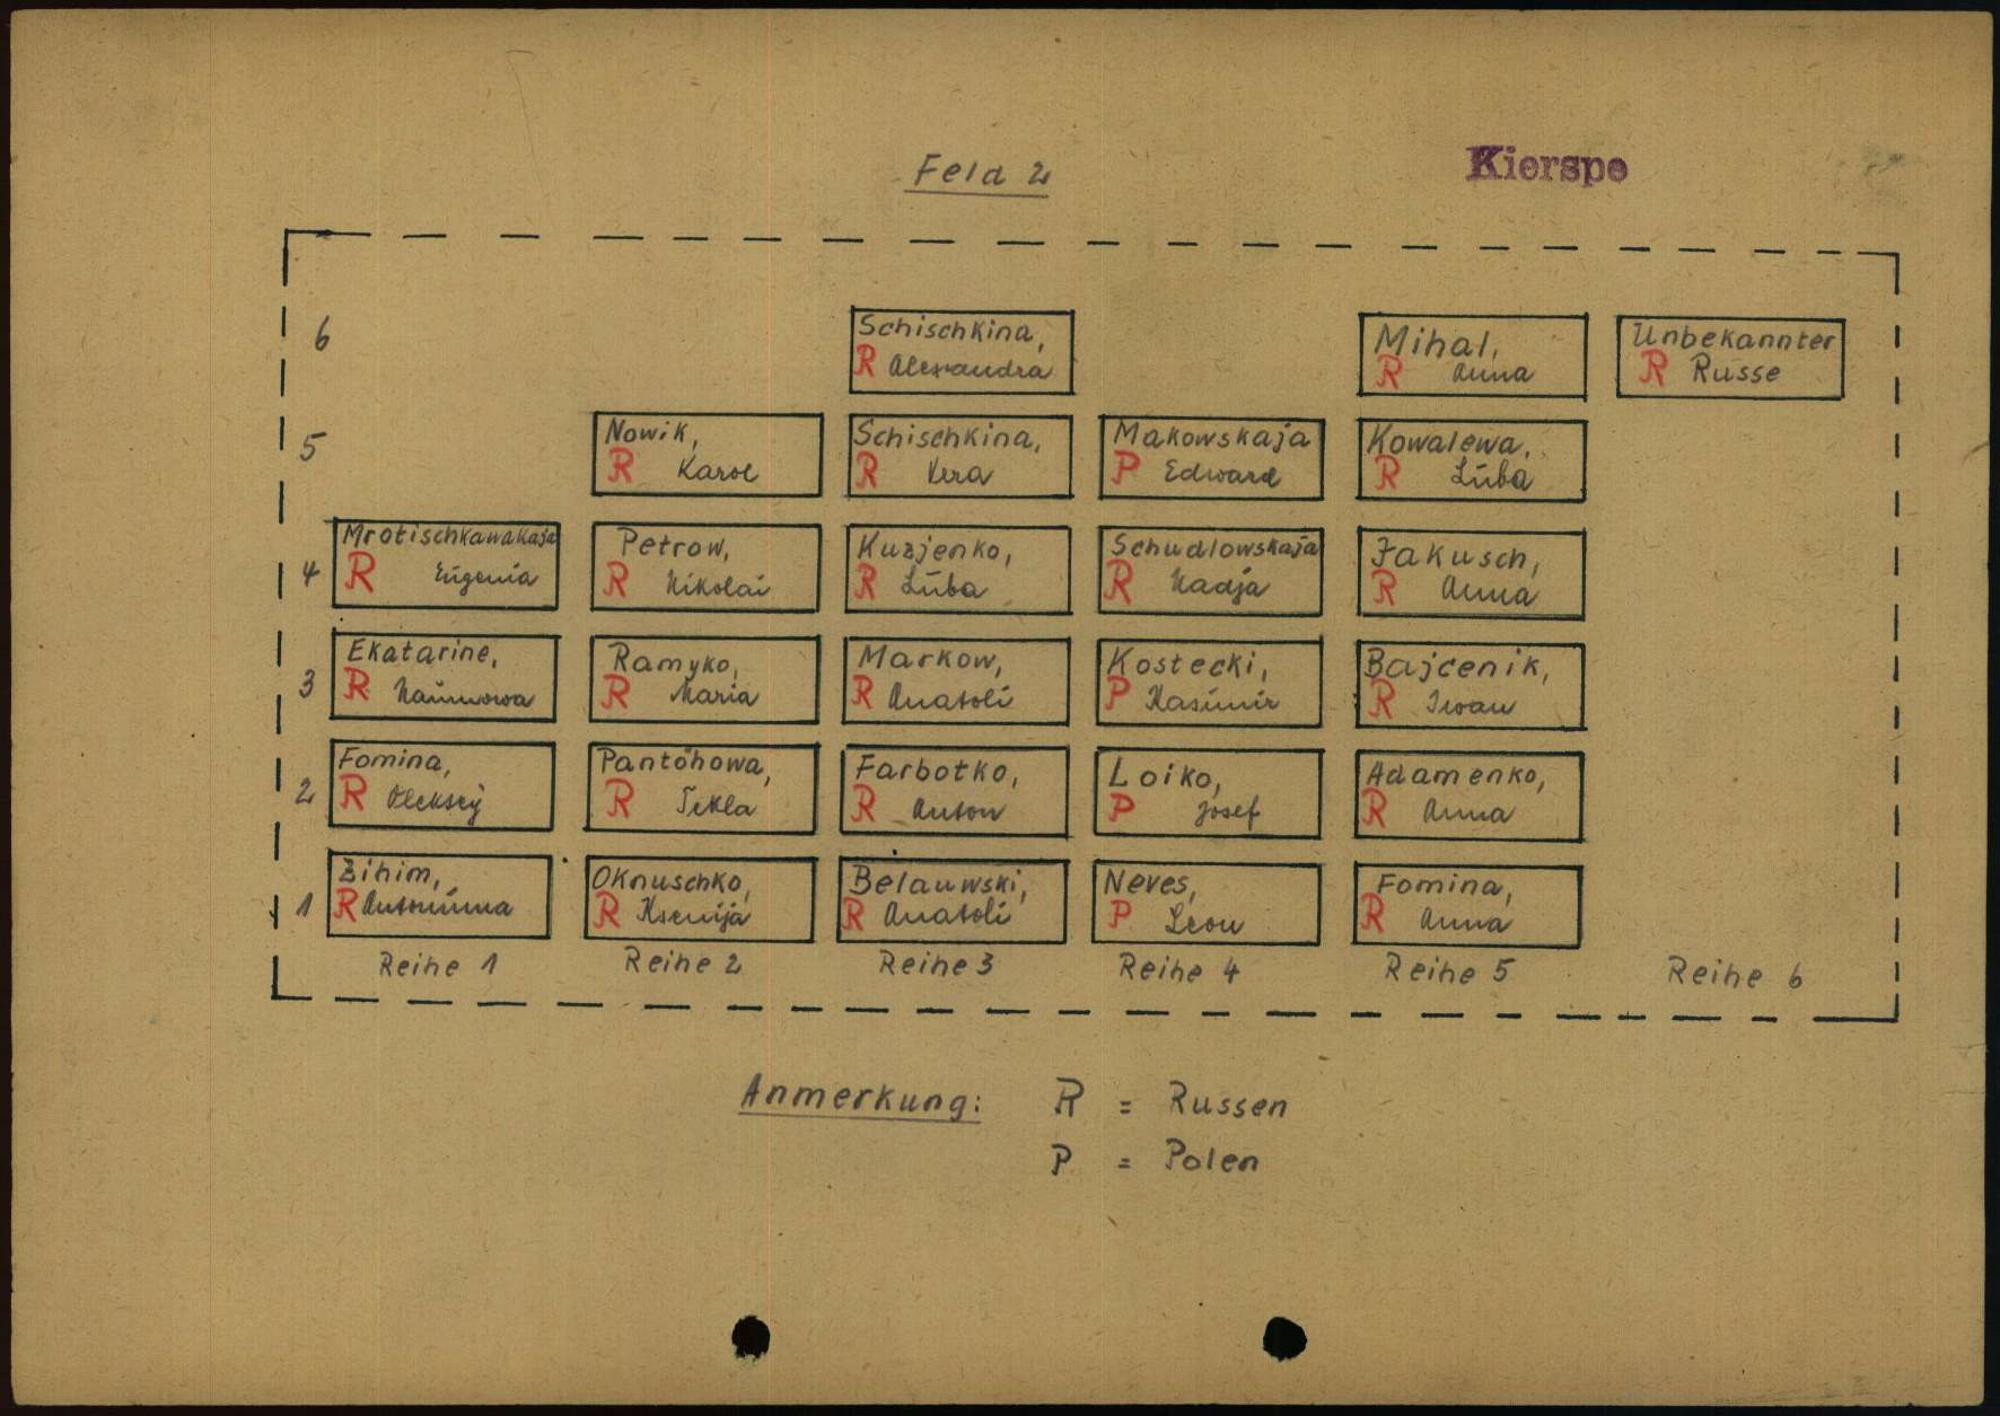 Feld 2
Kierspe
6
Schischkina,
R Alexandra
Mihal,
R Anna
Unbekannter
R Russe
5
Nowik,
R Karol
Schischkina,
R Vera
Makowskaja
P Edward
Kowalewa,
R Lūba
4
Mrotischkawakaja
R Eūgenia
Petrow,
R Nikolai
Kuzjenko,
R Lūba
Schudlowskaja
R Nadja
Jakusch,
R Anna
3
Ekatarine,
R Naūmowa
Ramyko,
R Maria
Markow,
R Anatoli
Kostecki,
P Kasimir
Bajcenik,
R Iwan
2
Fomina,
R Oleksej
Pantohowa,
R Tekla
Farbotko,
R Anton
Loiko,
P Josef
Adamenko,
R Anna
1
Zihim,
R Antonina
Oknuschko,
R Ksenija
Belauwski,
R Anatoli
Neves,
P Leon
Fomina,
R Anna
Reihe 1
Reihe 2
Reihe 3
Reihe 4
Reihe 5
Reihe 6
Anmerkung: R = Russen
P = Polen